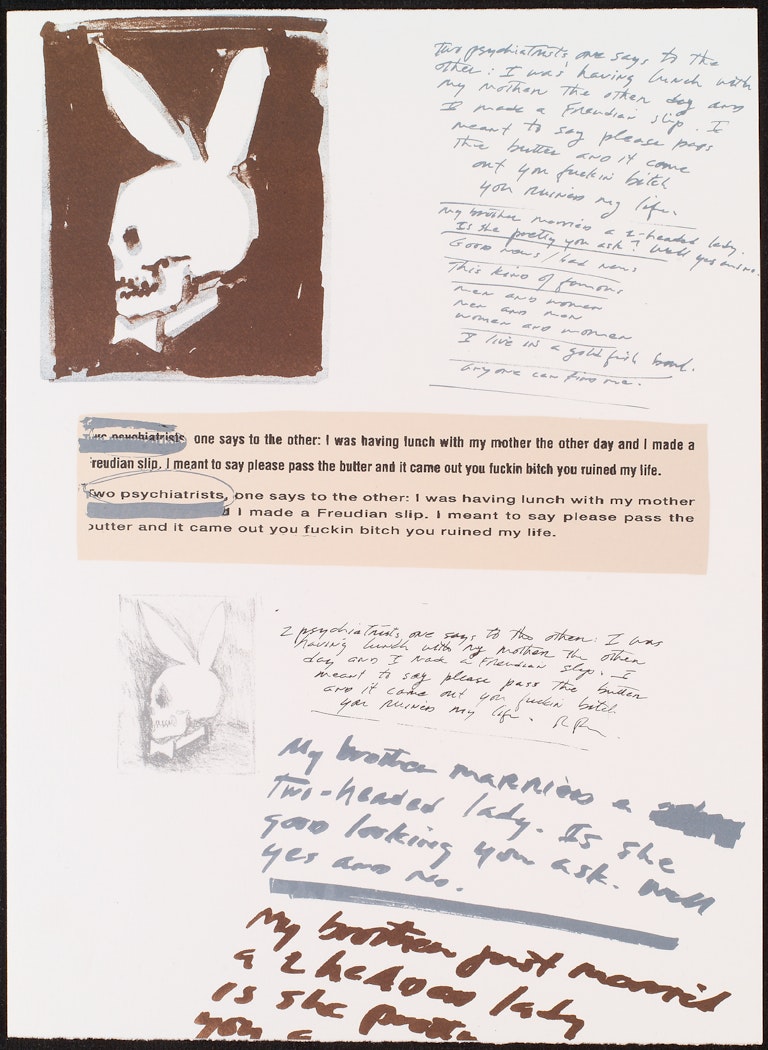 Two psychiatrists, one says to the
other: I was having lunch with
my mother the other day and
I made a Freudian slip. I
meant to say please pass
the butter and it came
out you fuckin bitch
you ruined my life.
My brother married a 2-headed lady.
Is she pretty you ask? Well yes and no.
Good news / bad news
This kind of famous
men and women
men and men
women and women
I live in a goldfish bowl.
anyone can find me.
Two psychiatrists, one says to the other: I was having lunch with my mother the other day and I made a
reudian slip. I meant to say please pass the butter and it came out you fuckin bitch you ruined my life.
Two psychiatrists, one says to the other: I was having lunch with my mother
d I made a Freudian slip. I meant to say please pass the
butter and it came out you fuckin bitch you ruined my life.
2 psychiatrists, one says to the other: I was
having lunch with my mother the other
day and I made a Freudian slip. I
meant to say please pass the butter
and it came out you fuckin bitch
you ruined my life.
My brother married a
Two-headed lady. Is she
good looking you ask. Well
yes and no.
My brother just married
a 2 headed lady
is she pretty
you a